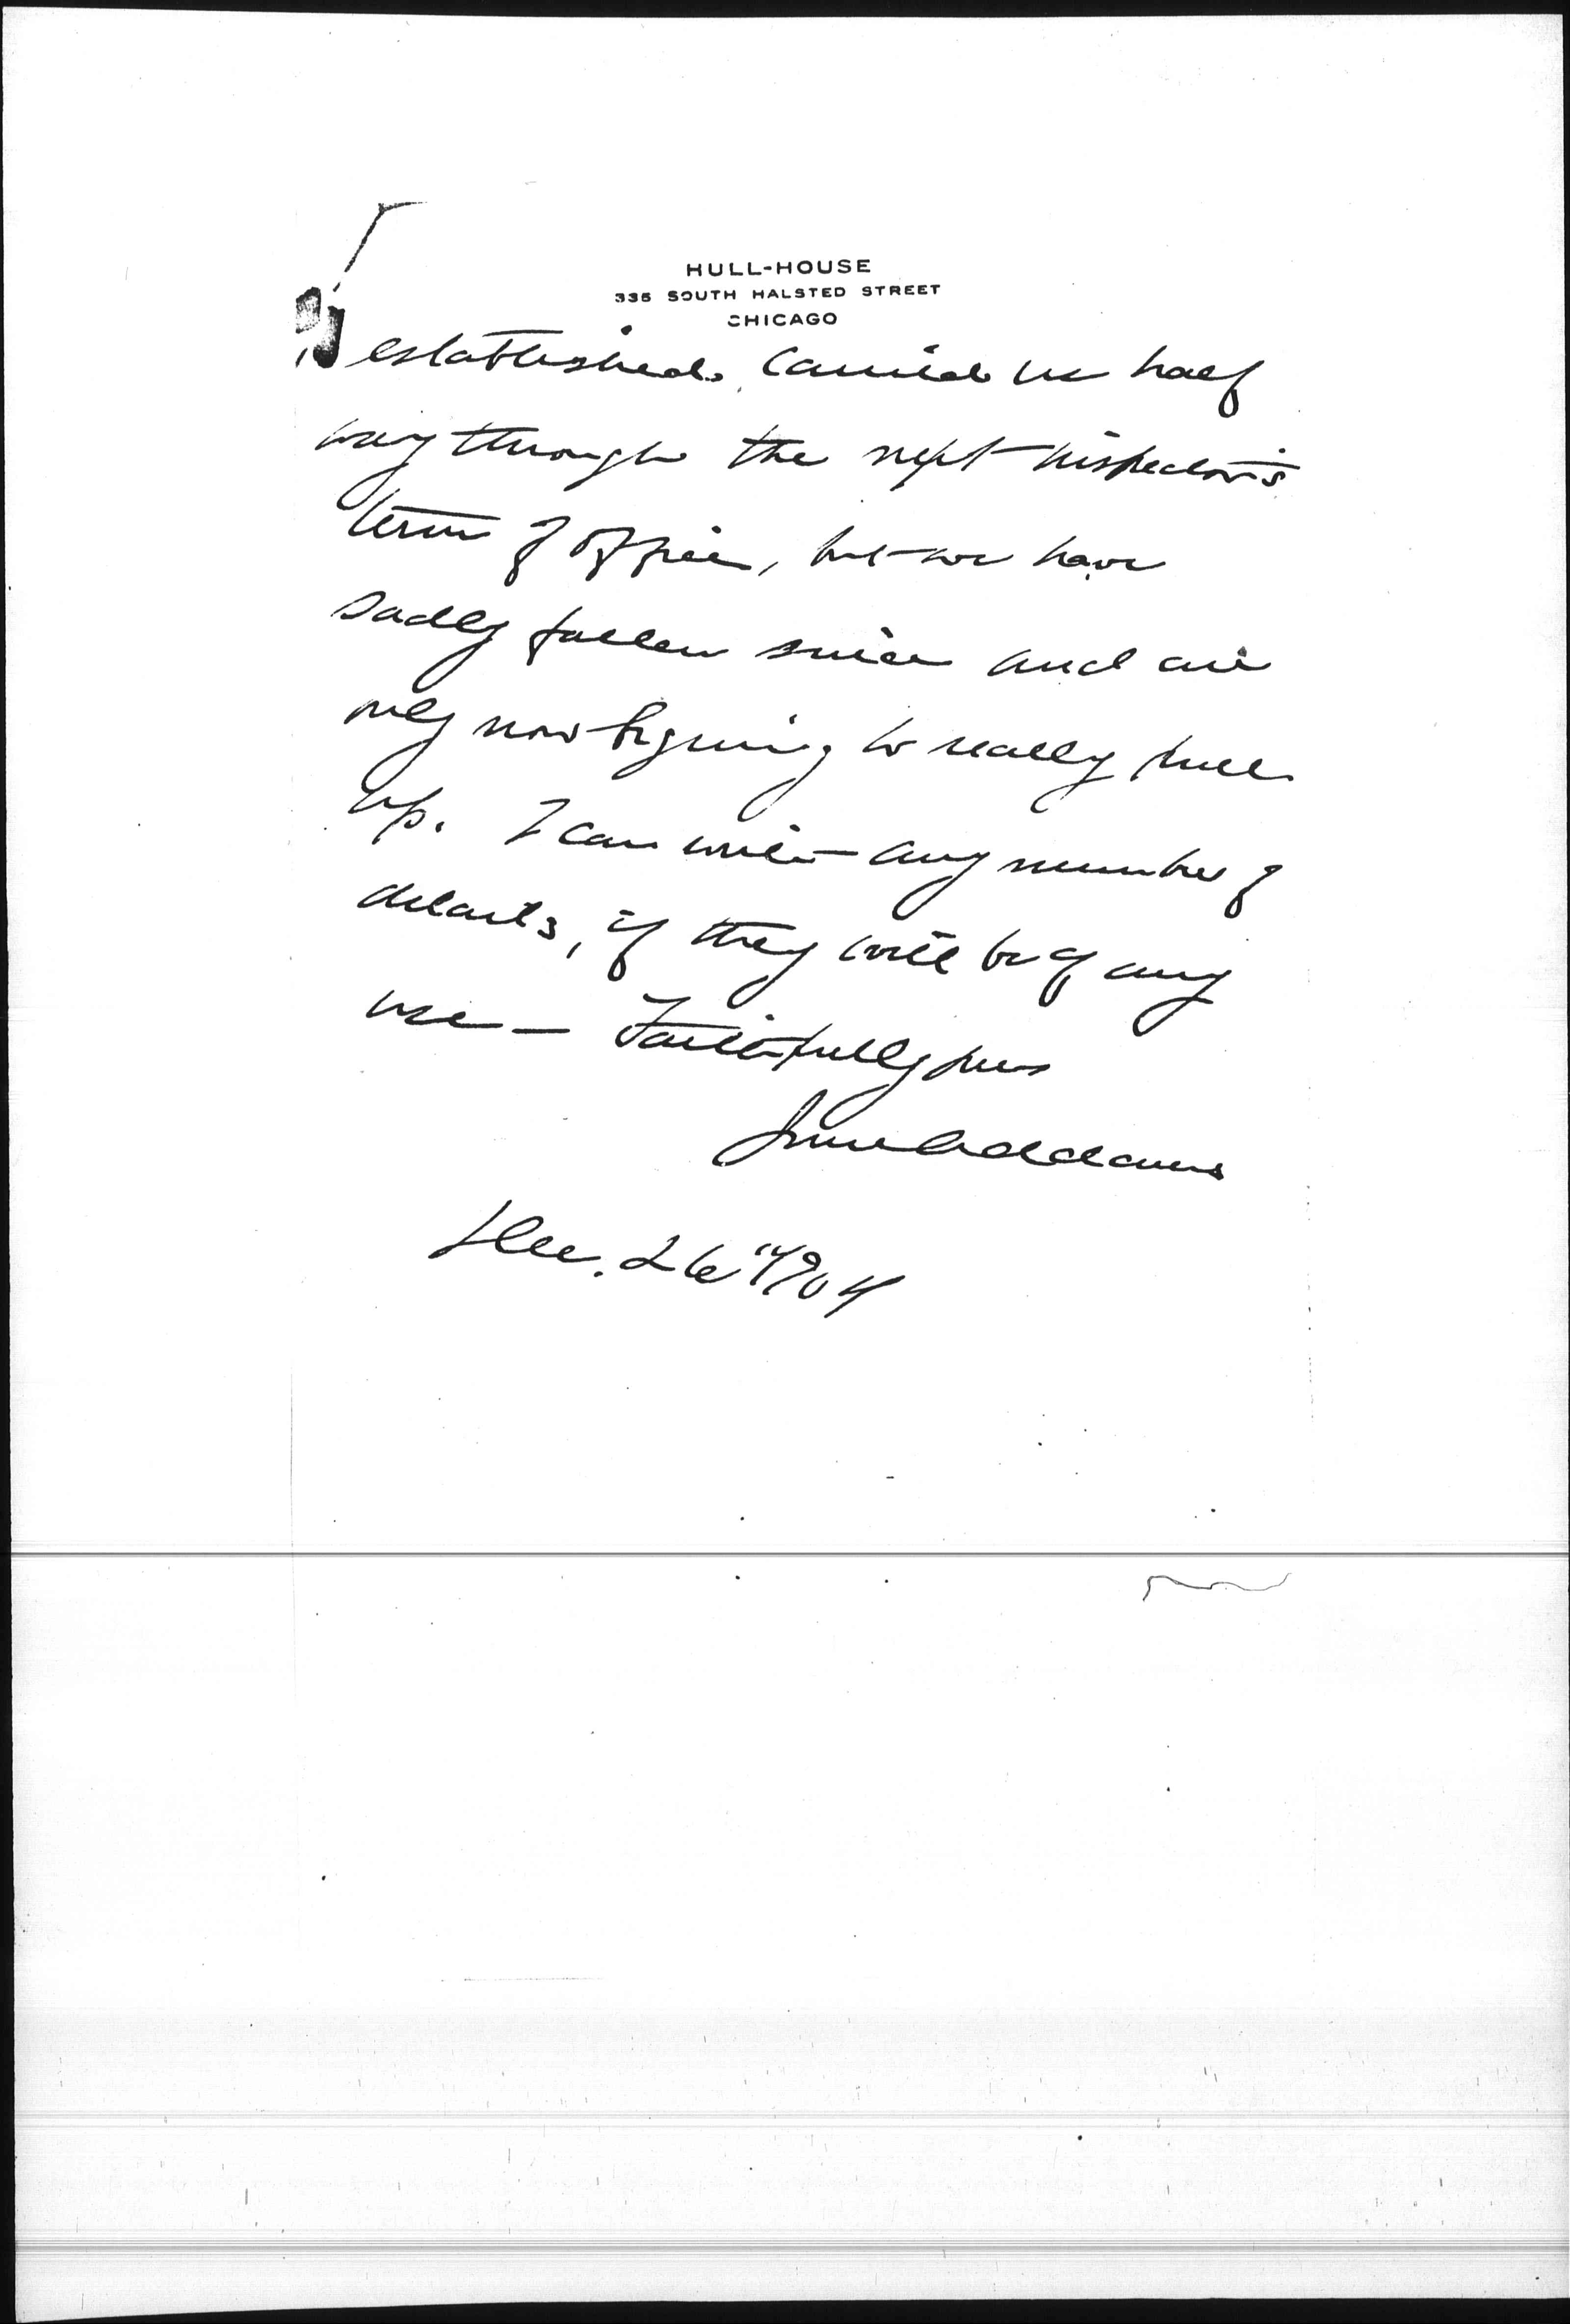 HULL-HOUSE
335 SOUTH HALSTED STREET
CHICAGO
established. Carried us half
way through the next inspector's
term of office, but we have
sadly fallen since and are
only now begining to really pull
up. I can write any number of
details, if they will be of any
use — Faithfully yours
Jane Addams
Dec. 26" 1904